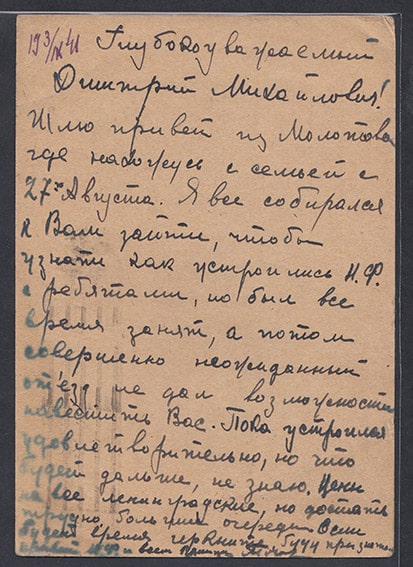 19 3/IX 41
Глубокоуважаемый
Дмитрий Михайлович!
Шлю привет из Молотова
где нахожусь с семьей с
27го Августа. Я все собирался
к Вам зайти, чтобы
узнать как устроились Н.Ф.
с ребятами, но был все
время занят, а потом
совершенно неожиданный
от'езд не дал возможности
навестить Вас. Пока устроился
удовлетворительно, но что
будет дальше, не знаю. Цены
на все ленинградские, но достать
трудно большие очереди. Если
будет время черкните, буду признателен
Привет Н.Ф. и всем